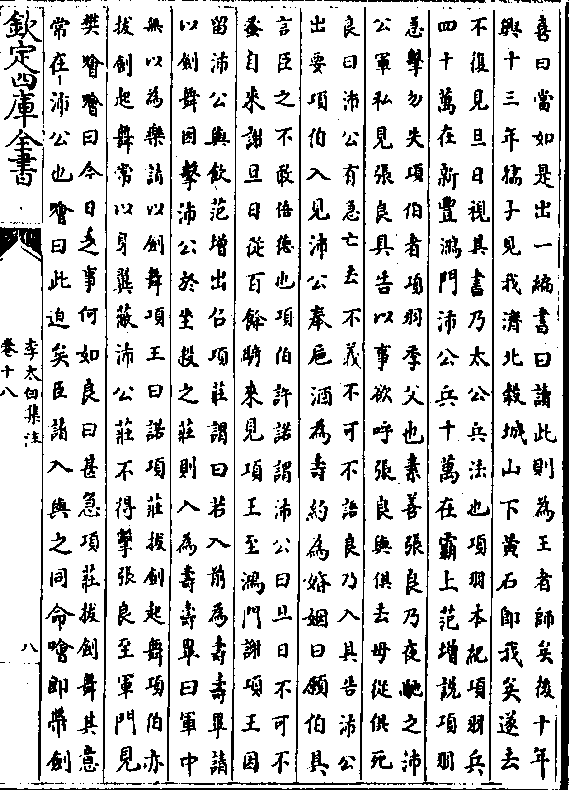 喜曰當如是出一編書曰讀此則為王者師矣後十年
興十三年孺子見我濟北穀城山下黃石即我矣遂去
不復見旦日視其書乃太公兵法也項羽本紀項羽兵
四十萬在新豐鴻門沛公兵十萬在霸上范增說項羽
急擊勿失項伯者項羽季父也素善張良乃夜馳之沛
公軍私見張良具告以事欲呼張良與俱去毋從俱死
良曰沛公有急亡去不義不可不語良乃入具告沛公
出要項伯入見沛公奉巵酒為壽約為婚姻曰願伯具
言臣之不敢倍德也項伯許諾謂沛公曰旦日不可不
蚤自來謝旦日從百餘騎來見項王至鴻門謝項王因
留沛公與飲范增出召項莊謂曰若入前為壽壽畢請
以劍舞因擊沛公於坐殺之莊則入為壽壽畢曰軍中
無以為樂請以劍舞項王曰諾項莊拔劍起舞項伯亦
拔劍起舞常以身翼蔽沛公莊不得擊張良至軍門見
樊噲噲曰今日之事何如良曰甚急項莊拔劍舞其意
常在沛公也噲曰此迫矣臣請入與之同命噲即帶劍
欽定四庫全書
李太白集注
卷十八
八